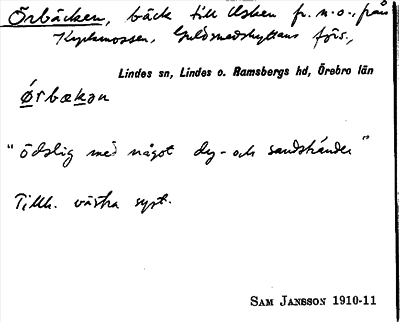 Örbäcken, bäck till Usken fr. n.o., från
Kyrkmossen, Guldsmedshyttans förs.,
Lindes sn, Lindes o. Ramsbergs hd, Örebro län
Ørbækən
"ödslig med något dy- och sandstränder"
Tillh. västra syst.
SAM JANSSON 1910-11